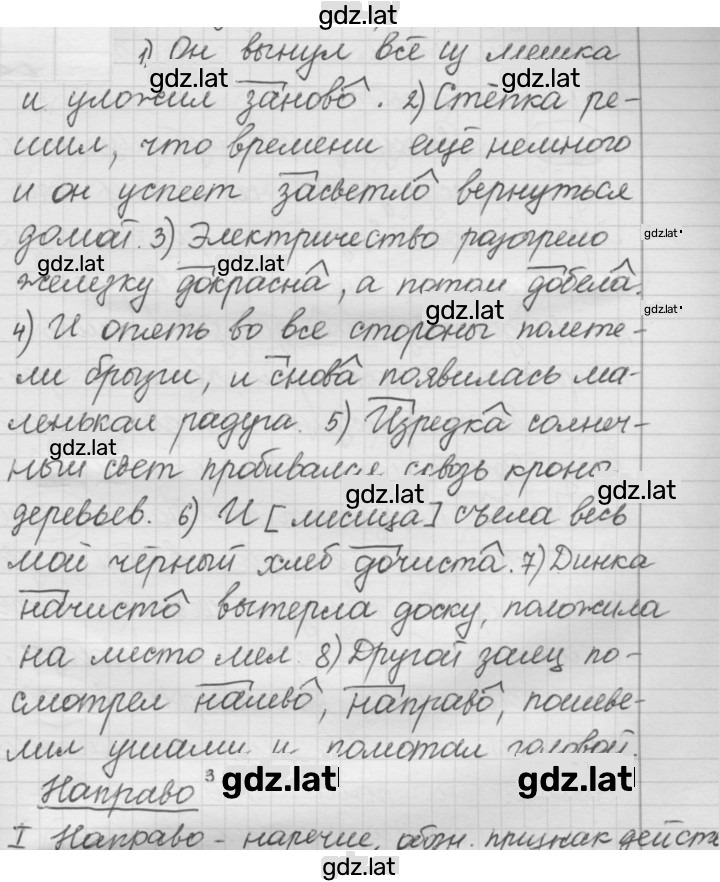 gdz.lat
1) Он вынул всё из мешка
gdz.lat gdz.lat
и уложил заново. 2) Стёпка ре-
шил, что времени ещё немного
и он успеет засветло вернуться
домой. 3) Электричество разогрело
gdz.lat
gdz.lat gdz.lat
железку докрасна, а потом добела.
gdz.lat gdz.lat
4) И опять во все стороны полете-
ли брызги, и снова появилась ма-
ленькая радуга. 5) Изредка солнеч-
gdz.lat
ный свет пробивался сквозь кроны
gdz.lat gdz.lat
деревьев. 6) И [лисица] съела весь
мой чёрный хлеб дочиста. 7) Динка
начисто вытерла доску, положила
на место мел. 8) Другой заяц по-
смотрел налево, направо, пошеве-
лил ушами и помотал головой.
Направо³ gdz.lat gdz.lat
I Направо - наречие, обозн. признак действ
gdz.lat